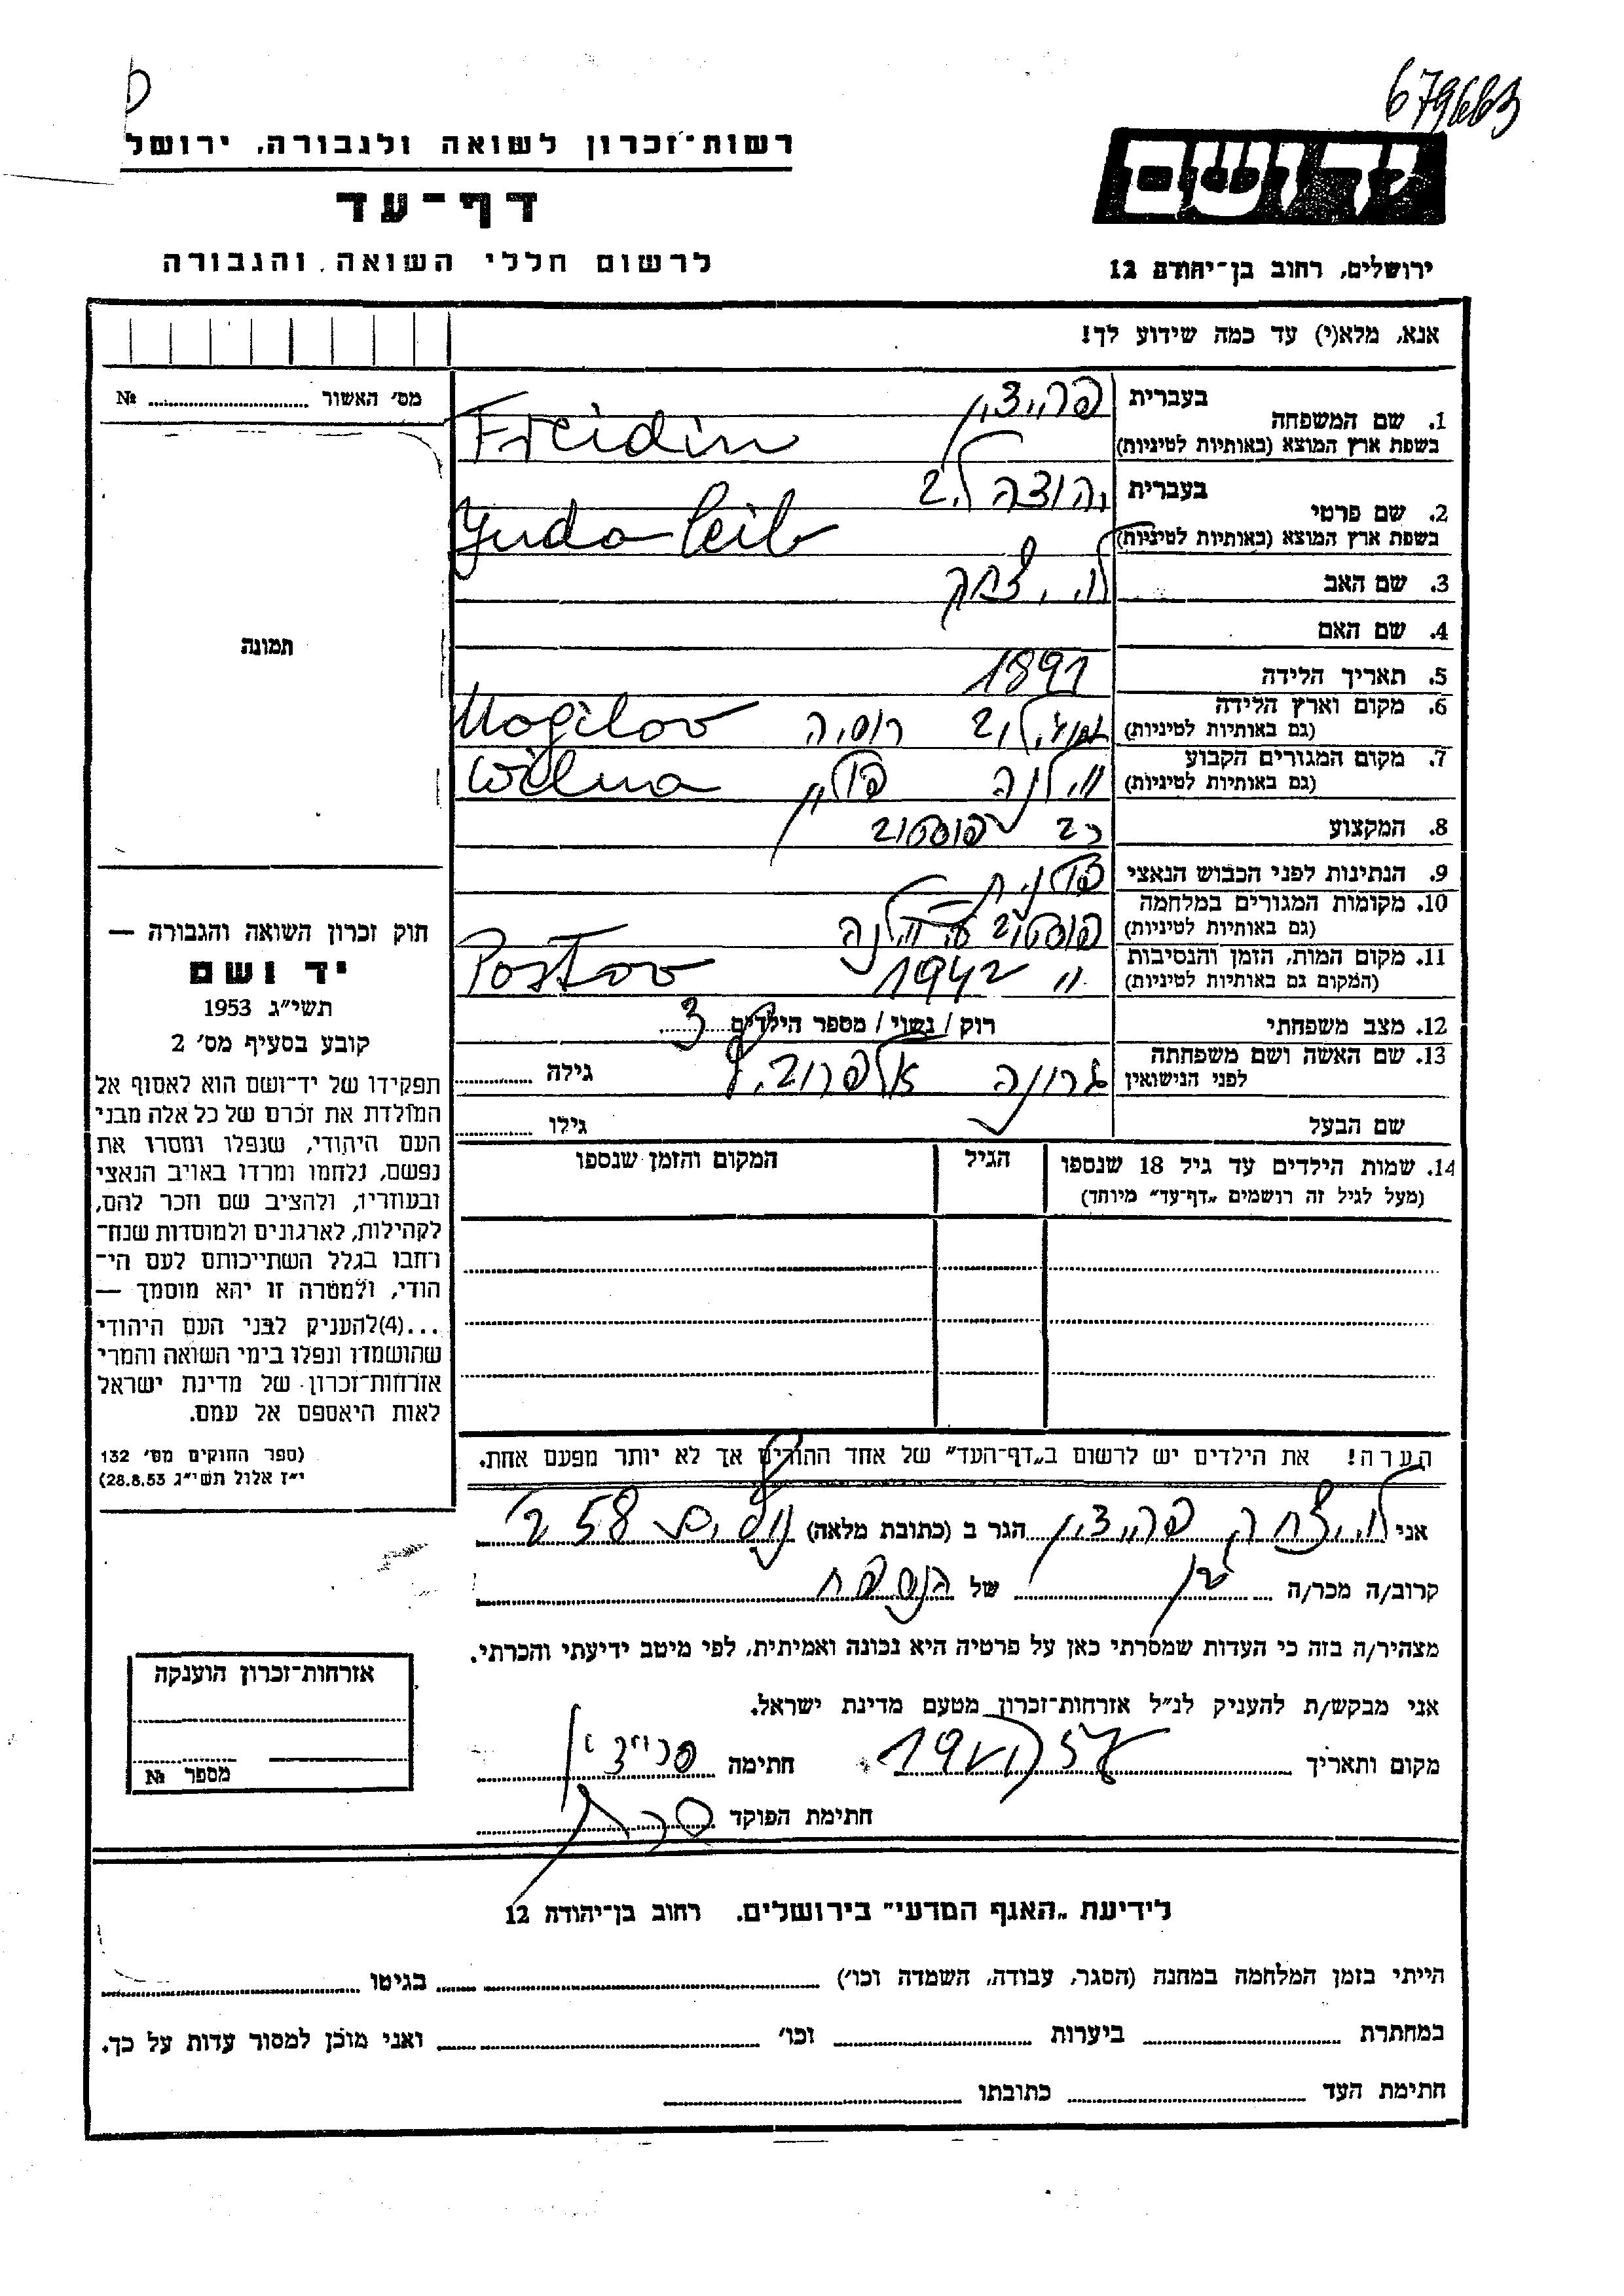 679663
רשות־זכרון לשואה ולגבורה, ירושל
דף־עד
לרשום חללי השואה והגבורה
יד ושם
ירושלים, רחוב בן־יהודה 12
אנא, מלא(י) עד כמה שידוע לך!
מס׳ האשור № ........
1. שם המשפחה
בעברית פריידין
בשפת ארץ המוצא (באותיות לטיניות) Freidin
2. שם פרטי
בעברית יהודה ליב
בשפת ארץ המוצא (באותיות לטיניות) Yuda Leib
3. שם האב לוי יצחק
4. שם האם
5. תאריך הלידה 1891
6. מקום וארץ הלידה
(גם באותיות לטיניות) מוגילוב רוסיה Mogilov
7. מקום המגורים הקבוע
(גם באותיות לטיניות) וילנה פולין Wilna
8. המקצוע רב פוסטוב
9. הנתינות לפני הכבוש הנאצי פולנית
10. מקומות המגורים במלחמה
(גם באותיות לטיניות) פוסטוב ע״י וילנה
11. מקום המות, הזמן והנסיבות
(המקום גם באותיות לטיניות) ״ 1942 Postov
12. מצב משפחתי רוק / נשוי / מספר הילדים 3
13. שם האשה ושם משפחתה
לפני הנישואין גילה ........
שם הבעל גילו ........
14. שמות הילדים עד גיל 18 שנספו
(מעל לגיל זה רושמים „דף־עד״ מיוחד)
הגיל
המקום והזמן שנספו
תמונה
חוק זכרון השואה והגבורה —
יד ושם
תשי״ג 1953
קובע בסעיף מס׳ 2
תפקידו של יד־ושם הוא לאסוף אל
המולדת את זכרם של כל אלה מבני
העם היהודי, שנפלו ומסרו את
נפשם, נלחמו ומרדו באויב הנאצי
ובעוזריו, ולהציב שם וזכר להם,
לקהילות, לארגונים ולמוסדות שנח־
רחבו בגלל השתייכותם לעם הי־
הודי, ולמטרה זו יהא מוסמך —
...(4)להעניק לבני העם היהודי
שהושמדו ונפלו בימי השואה והמרי
אזרחות־זכרון של מדינת ישראל
לאות היאספם אל עמם.
(ספר החוקים מס׳ 132
י״ז אלול תשי״ג 28.8.53)
הערה! את הילדים יש לרשום ב„דף־העד״ של אחד ההורים אך לא יותר מפעם אחת.
אני לוי יצחק פריידין הגר ב (כתובת מלאה)
קרוב/ה מכר/ה בן של הנספה
מצהיר/ה בזה כי העדות שמסרתי כאן על פרטיה היא נכונה ואמיתית, לפי מיטב ידיעתי והכרתי.
אני מבקש/ת להעניק לנ״ל אזרחות־זכרון מטעם מדינת ישראל.
מקום ותאריך חתימה פריידין
חתימת הפוקד
אזרחות־זכרון הוענקה
מספר №
לידיעת „האגף המדעי״ בירושלים, רחוב בן־יהודה 12
הייתי בזמן המלחמה במחנה (הסגר, עבודה, השמדה וכו׳) ........ בגיטו ........
במחתרת ........ ביערות ........ וכו׳ ........ ואני מוכן למסור עדות על כך.
חתימת העד ........ כתובתו ........